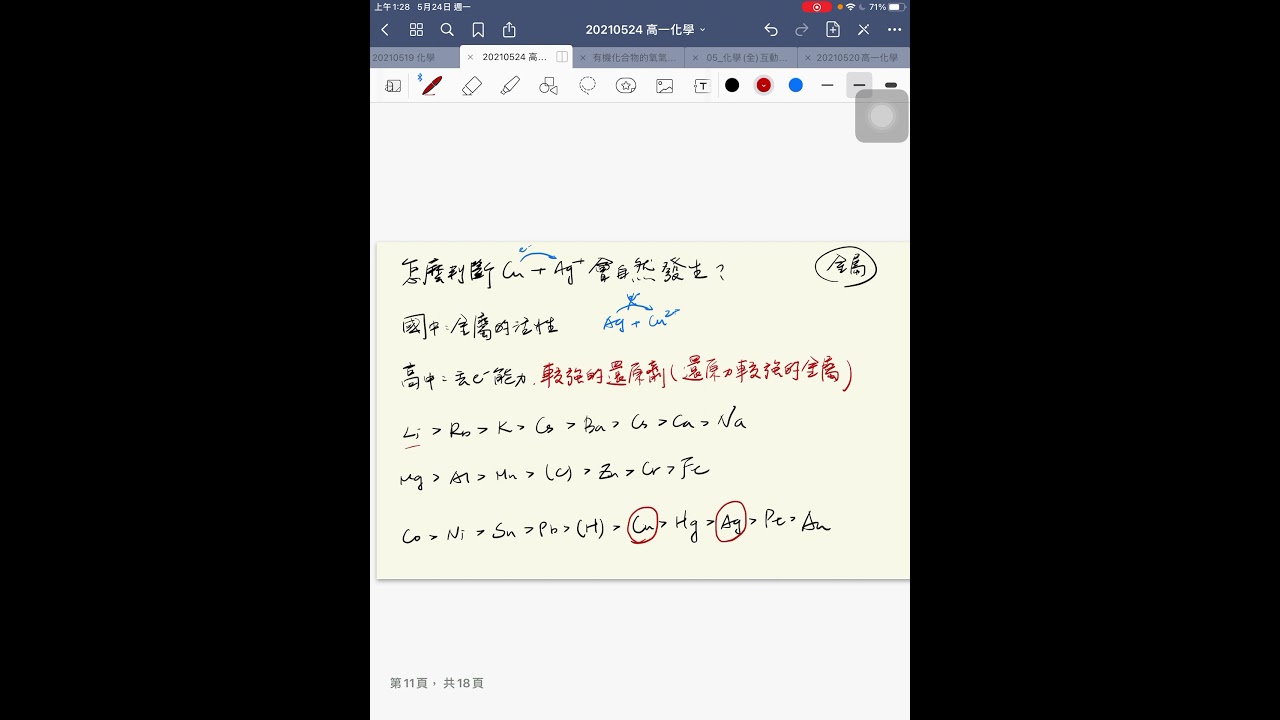 上午1:28 5月24日 週一 71%
20210524 高一化學
20210519 化學 20210524 高一... 有機化合物的氧氣... 05_化學 (全) 互動... 20210520 高一化學
e⁻
怎麼判斷 Cu + Ag⁺ 會自然發生? 金屬
國中:金屬的活性 Ag + Cu²⁺
高中:丟e⁻能力, 較強的還原劑(還原力較強的金屬)
Li > Rb > K > Cs > Ba > Cs > Ca > Na
Mg > Al > Mn > (C) > Zn > Cr > Fe
Co > Ni > Sn > Pb > (H) > Cu > Hg > Ag > Pt > Au
第11頁, 共18頁